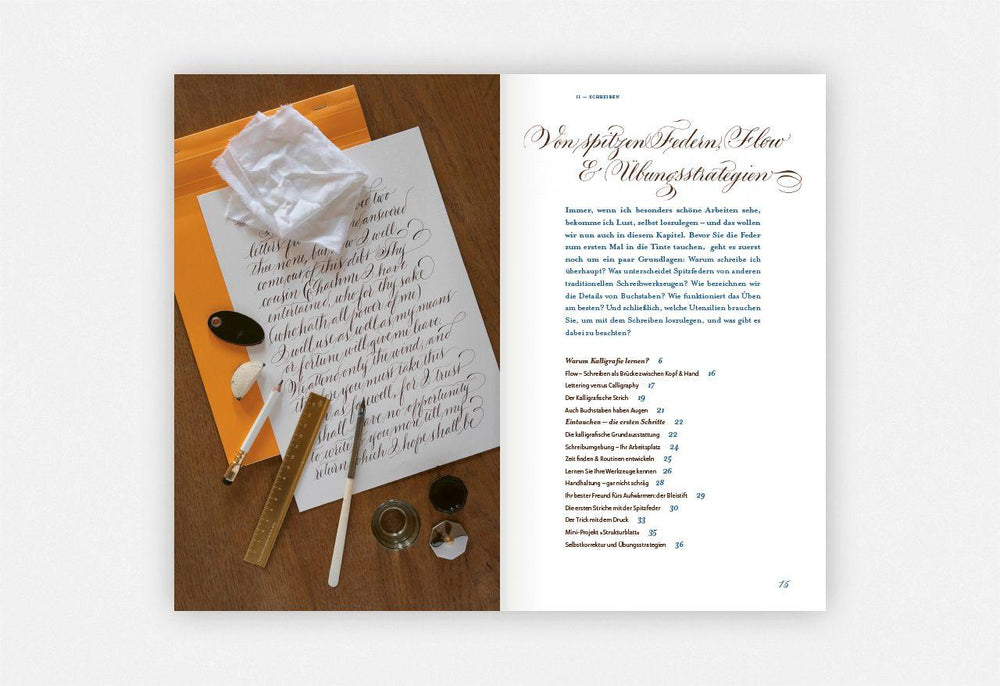 two
answered
letters
the none, I will
come out of this debt. Thy
cousin I have
entertained, who for thy sake
(who hath, all power of me)
I will use as well as my means
or fortune will give me leave.
We attend only the wind, and
you must take this
as farewell, for I trust
shall have no opportunity
to write you more till my
return, which I hope shall be
II — SCHREIBEN
Von spitzen Federn, Flow
& Übungsstrategien
Immer, wenn ich besonders schöne Arbeiten sehe,
bekomme ich Lust, selbst loszulegen – und das wollen
wir nun auch in diesem Kapitel. Bevor Sie die Feder
zum ersten Mal in die Tinte tauchen, geht es zuerst
noch um ein paar Grundlagen: Warum schreibe ich
überhaupt? Was unterscheidet Spitzfedern von anderen
traditionellen Schreibwerkzeugen? Wie bezeichnen wir
die Details von Buchstaben? Wie funktioniert das Üben
am besten? Und schließlich, welche Utensilien brauchen
Sie, um mit dem Schreiben loszulegen, und was gibt es
dabei zu beachten?
Warum Kalligrafie lernen? 6
Flow – Schreiben als Brücke zwischen Kopf & Hand 16
Lettering versus Calligraphy 17
Der Kalligrafische Strich 19
Auch Buchstaben haben Augen 21
Eintauchen – die ersten Schritte 22
Die kalligrafische Grundausstattung 22
Schreibumgebung – Ihr Arbeitsplatz 24
Zeit finden & Routinen entwickeln 25
Lernen Sie Ihre Werkzeuge kennen 26
Handhaltung – gar nicht schräg 28
Ihr bester Freund fürs Aufwärmen: der Bleistift 29
Die ersten Striche mit der Spitzfeder 30
Der Trick mit dem Druck 33
Mini-Projekt »Strukturblatt« 35
Selbstkorrektur und Übungsstrategien 36
15